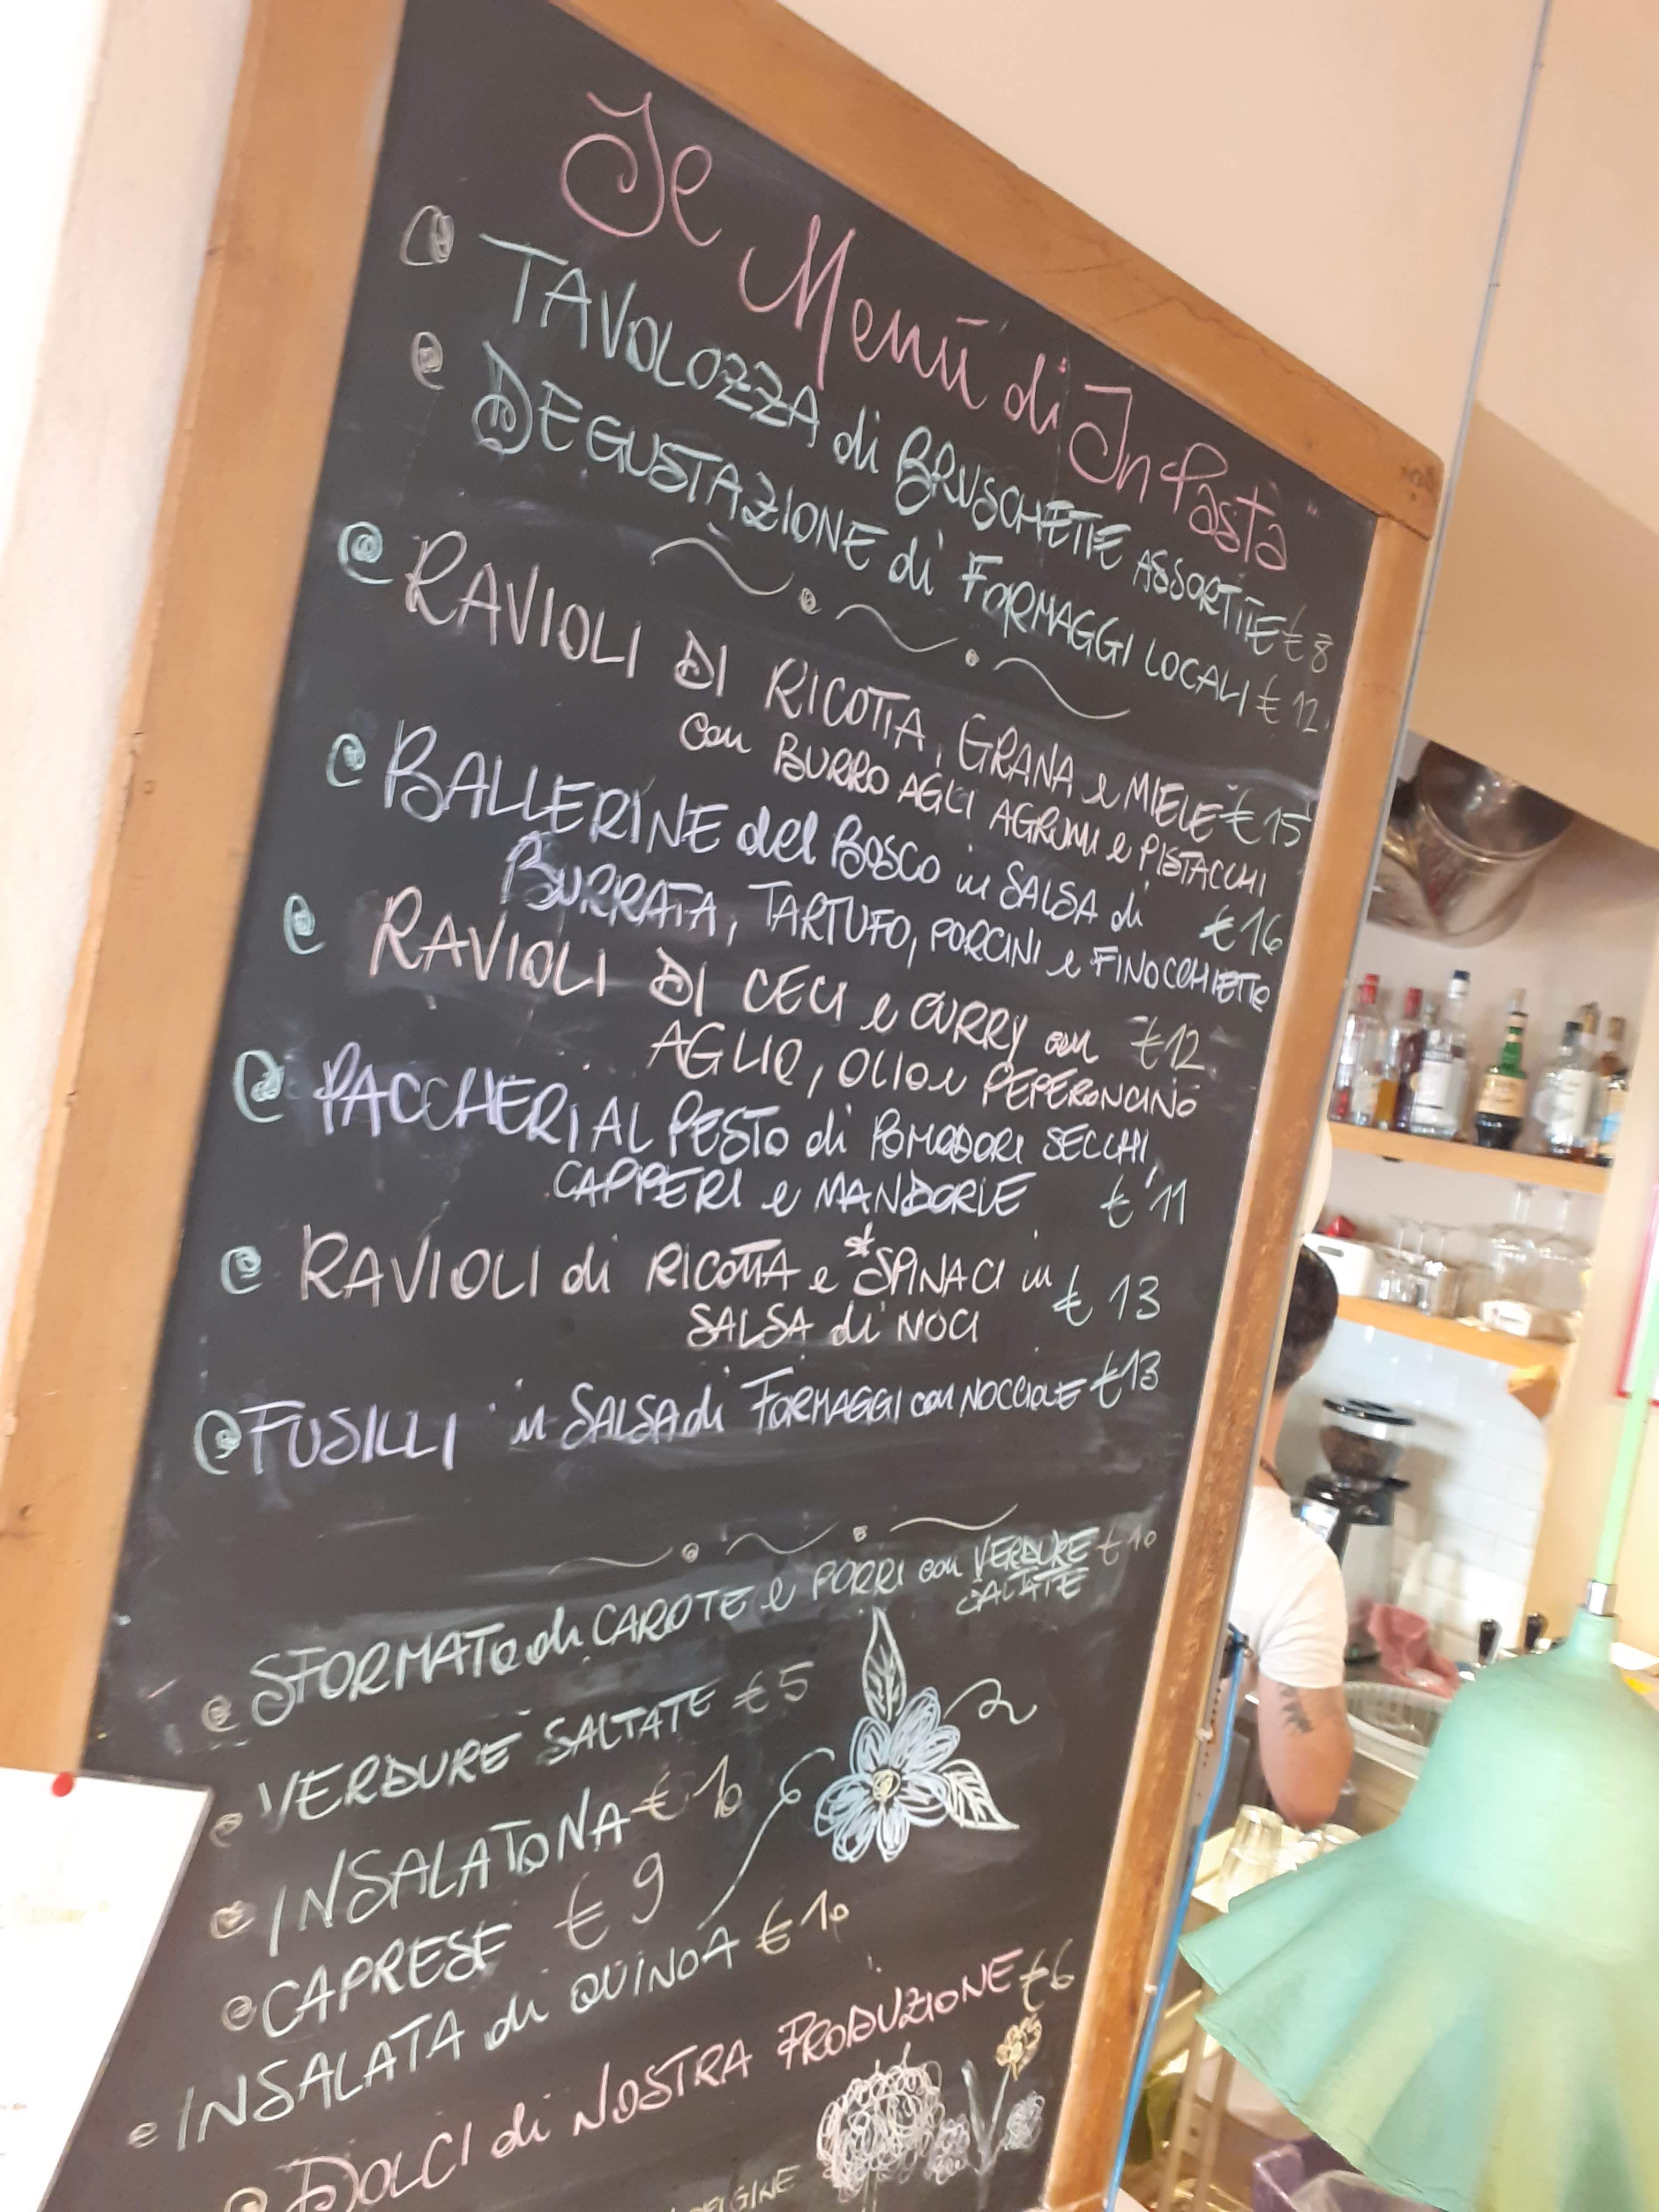 Il Menù di InPasta
TAVOLOZZA di BRUSCHETTE ASSORTITE € 8
DEGUSTAZIONE di FORMAGGI LOCALI € 12
RAVIOLI DI RICOTTA, GRANA e MIELE € 15
con BURRO AGLI AGRUMI e PISTACCHI
BALLERINE del BOSCO in SALSA di € 16
BURRATA, TARTUFO, PORCINI e FINOCCHIETTO
RAVIOLI DI CECI e CURRY con € 12
AGLIO, OLIO e PEPERONCINO
PACCHERI AL PESTO di POMODORI SECCHI,
CAPPERI e MANDORLE € 11
RAVIOLI di RICOTTA e *SPINACI in € 13
SALSA di NOCI
FUSILLI in SALSA di FORMAGGI con NOCCIOLE € 13
SFORMATO di CAROTE e PORRI con VERDURE € 10
SALTATE
VERDURE SALTATE € 5
INSALATONA € 10
CAPRESE € 9
INSALATA di QUINOA € 10
DOLCI di NOSTRA PRODUZIONE € 6